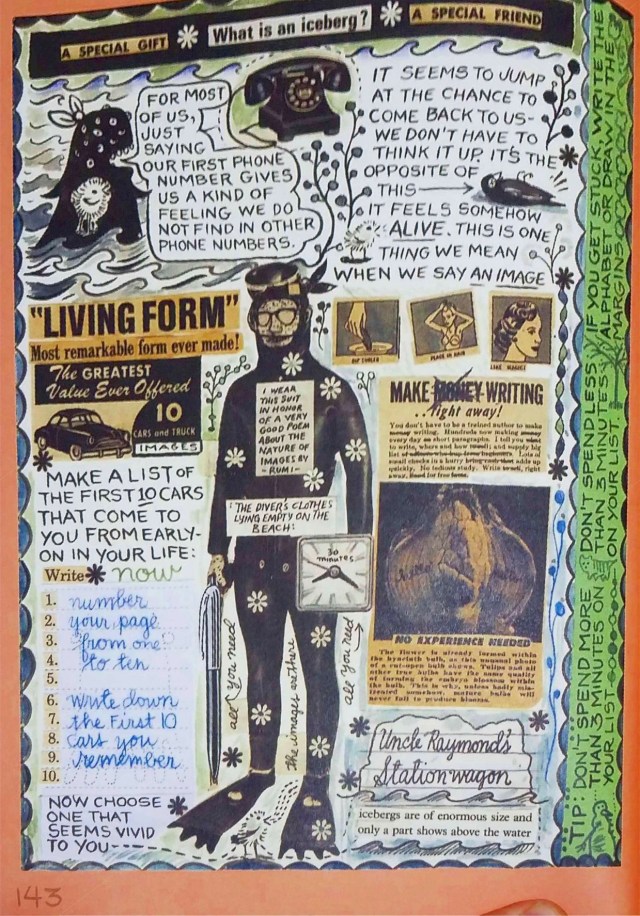 A SPECIAL GIFT
What is an iceberg?
A SPECIAL FRIEND
FOR MOST
OF US,
JUST
SAYING
OUR FIRST PHONE
NUMBER GIVES
US A KIND OF
FEELING WE DO
NOT FIND IN OTHER
PHONE NUMBERS.
IT SEEMS TO JUMP
AT THE CHANCE TO
COME BACK TO US-
WE DON'T HAVE TO
THINK IT UP. IT'S THE
OPPOSITE OF
THIS
IT FEELS SOMEHOW
ALIVE. THIS IS ONE
THING WE MEAN
WHEN WE SAY AN IMAGE
"LIVING FORM"
Most remarkable form ever made!
The GREATEST
Value Ever Offered
10
CARS and TRUCK
IMAGES
MAKE A LIST OF
THE FIRST 10 CARS
THAT COME TO
YOU FROM EARLY-
ON IN YOUR LIFE:
Write now
1. number
2. your page
3. from one
4. to ten
5.
6. write down
7. the first 10
8. cars you
9. remember
10.
NOW CHOOSE
ONE THAT
SEEMS VIVID
TO YOU
I WEAR
THIS SUIT
IN HONOR
OF A VERY
GOOD POEM
ABOUT THE
NATURE OF
IMAGES BY
-RUMI-
"THE DIVER'S CLOTHES
LYING EMPTY ON THE
BEACH."
30
minutes
all you need
the images are there
all you need
MAKE MONEY WRITING
..right away!
You don't have to be a trained author to make
money writing. Hundreds now making money
every day on short paragraphs. I tell you what
to write, where and how
NO EXPERIENCE NEEDED
The flower is already formed within
the hyacinth bulb, as this unusual photo
of a cut-open bulb shows. Tulips and all
other true bulbs have the same quality
of forming the embryo blossom within
the bulb. This is why, unless badly mis-
treated somehow, mature bulbs will
never fail to produce blooms.
Uncle Raymond's
Station wagon
icebergs are of enormous size and
only a part shows above the water
TIP: DON'T SPEND MORE
THAN 3 MINUTES ON
YOUR LIST
DON'T SPEND LESS
THAN 3 MINUTES
ON YOUR LIST.
IF YOU GET STUCK, WRITE THE
ALPHABET OR DRAW IN THE
MARGINS
143